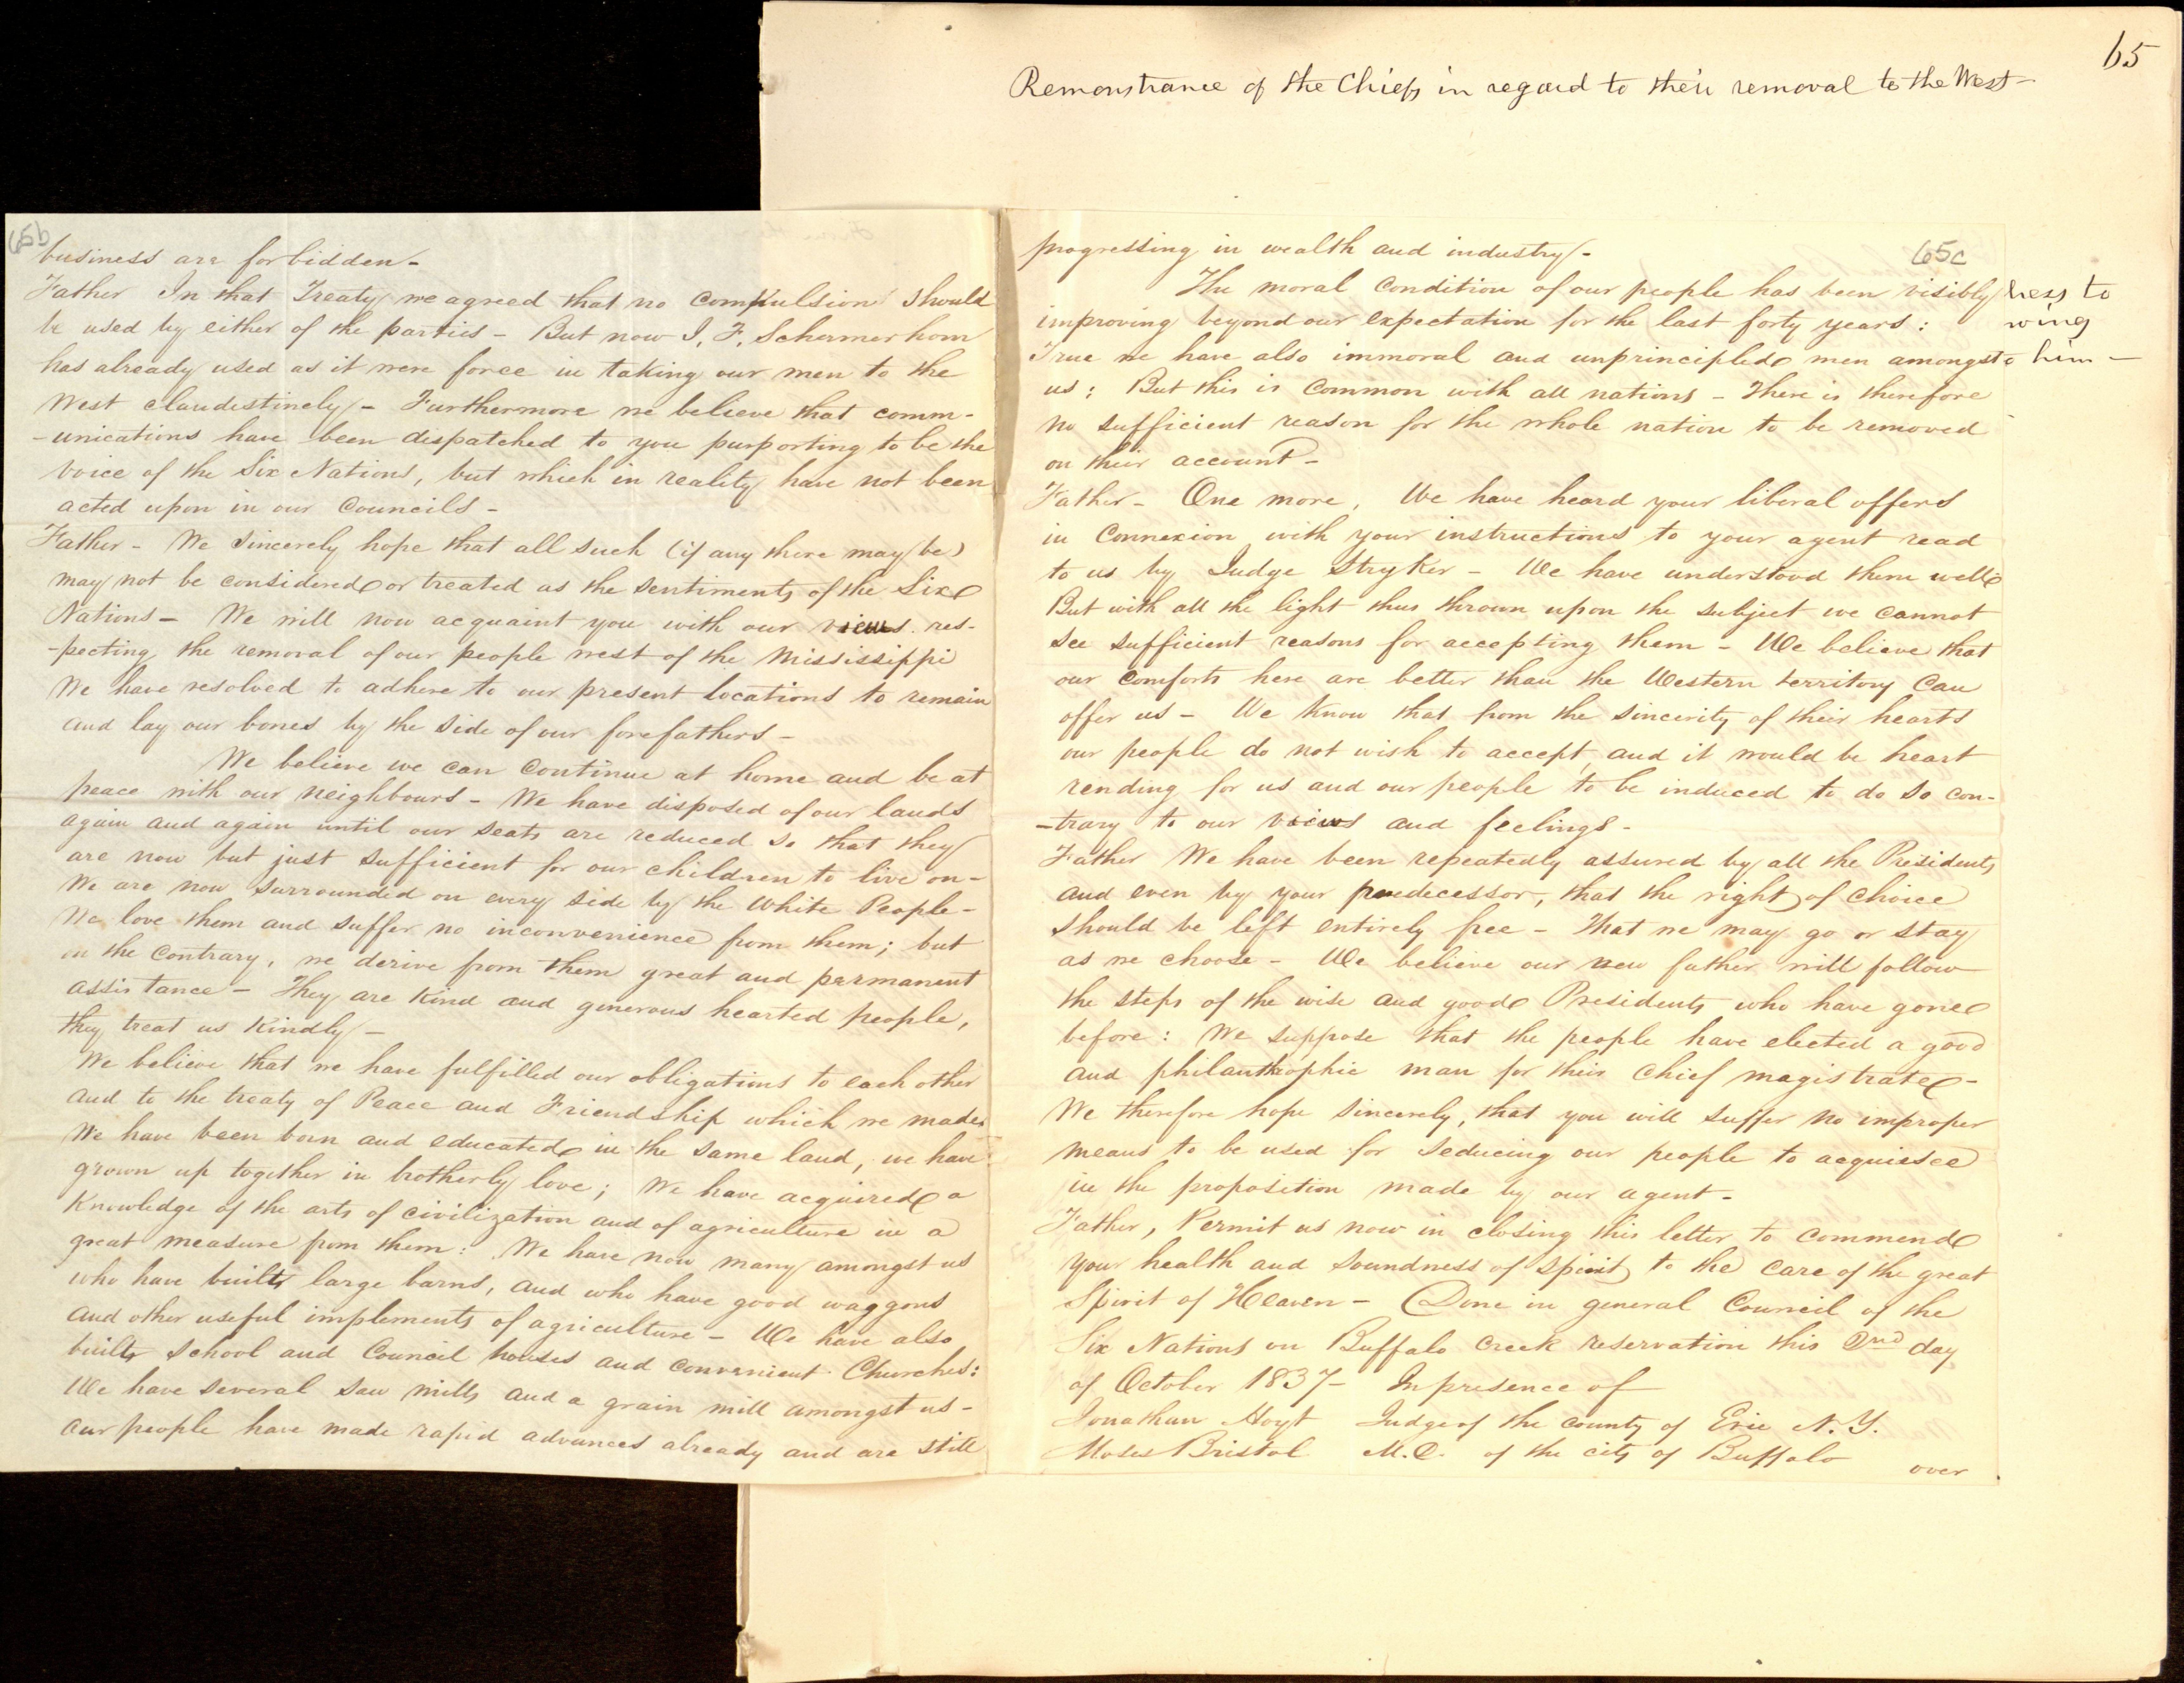 65
Remonstrance of the Chiefs in regard to their removal to the West-
65b
business are forbidden-
Father In that Treaty we agreed that no compulsion should
be used by either of the parties - But now J. F. Schermerhorn
has already used as it were force in taking our men to the
West clandestinely - Furthermore we believe that comm-
-unications have been dispatched to you purporting to be the
voice of the Six Nations, but which in reality have not been
acted upon in our Councils -
Father - We sincerely hope that all such (if any there may be)
may not be considered or treated as the sentiments of the Six
Nations - We will now acquaint you with our views res-
-pecting the removal of our people west of the Mississippi
We have resolved to adhere to our present locations to remain
and lay our bones by the side of our forefathers -
We believe we can continue at home and be at
peace with our neighbours - We have disposed of our lands
again and again until our seats are reduced so that they
are now but just sufficient for our children to live on -
We are now surrounded on every side by the White People -
We love them and suffer no inconvenience from them; but
on the contrary, we derive from them great and permanent
assistance - They are kind and generous hearted people,
they treat us kindly -
We believe that we have fulfilled our obligations to each other
and to the treaty of Peace and Friendship which we made
We have been born and educated in the same land, we have
grown up together in brotherly love; We have acquired a
knowledge of the arts of civilization and of agriculture in a
great measure from them: We have now many amongst us
who have built large barns, and who have good waggons
and other useful implements of agriculture - We have also
built School and Council houses and convenient Churches:
We have several saw mills and a grain mill amongst us -
our people have made rapid advances already and are still
65c
progressing in wealth and industry -
The moral condition of our people has been visibly
improving beyond our expectation for the last forty years:
True we have also immoral and unprincipled men amongst
us: But this is common with all nations - There is therefore
no sufficient reason for the whole nation to be removed
on their account -
Father - One more, We have heard your liberal offers
in connexion with your instructions to your agent read
to us by Judge Stryker - We have understood them well
But with all the light thus thrown upon the subject we cannot
see sufficient reasons for accepting them - We believe that
our comforts here are better than the Western territory can
offer us - We know that from the sincerity of their hearts
our people do not wish to accept, and it would be heart
rending for us and our people to be induced to do so con-
-trary to our views and feelings -
Father We have been repeatedly assured by all the Presidents
and even by your predecessor, that the right of choice
should be left entirely free - That we may go or stay
as we choose - We believe our new father will follow
the steps of the wise and good Presidents who have gone
before: We suppose that the people have elected a good
and philanthrophic man for their chief magistrate -
We therefore hope sincerely, that you will suffer no improper
means to be used for seducing our people to acquiesce
in the proposition made by our agent -
Father, Permit us now in closing this letter to commend
your health and soundness of spirit to the care of the great
Spirit of Heaven - Done in general Council of the
Six Nations on Buffalo Creek reservation this 2nd day
of October 1837 - In presence of
Jonathan Hoyt Judge of the county of Erie N. Y.
Moses Bristol M.D. of the city of Buffalo
over
ress to
wing
him -